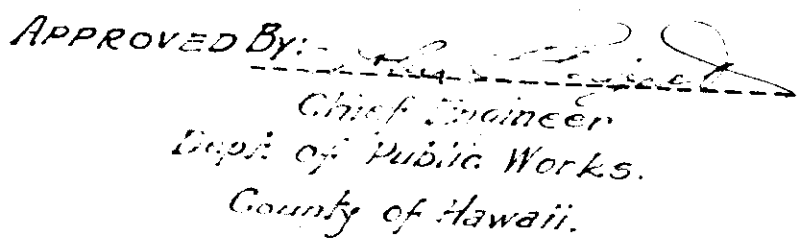 APPROVED By:
Chief Engineer
Dept. of Public Works.
County of Hawaii.